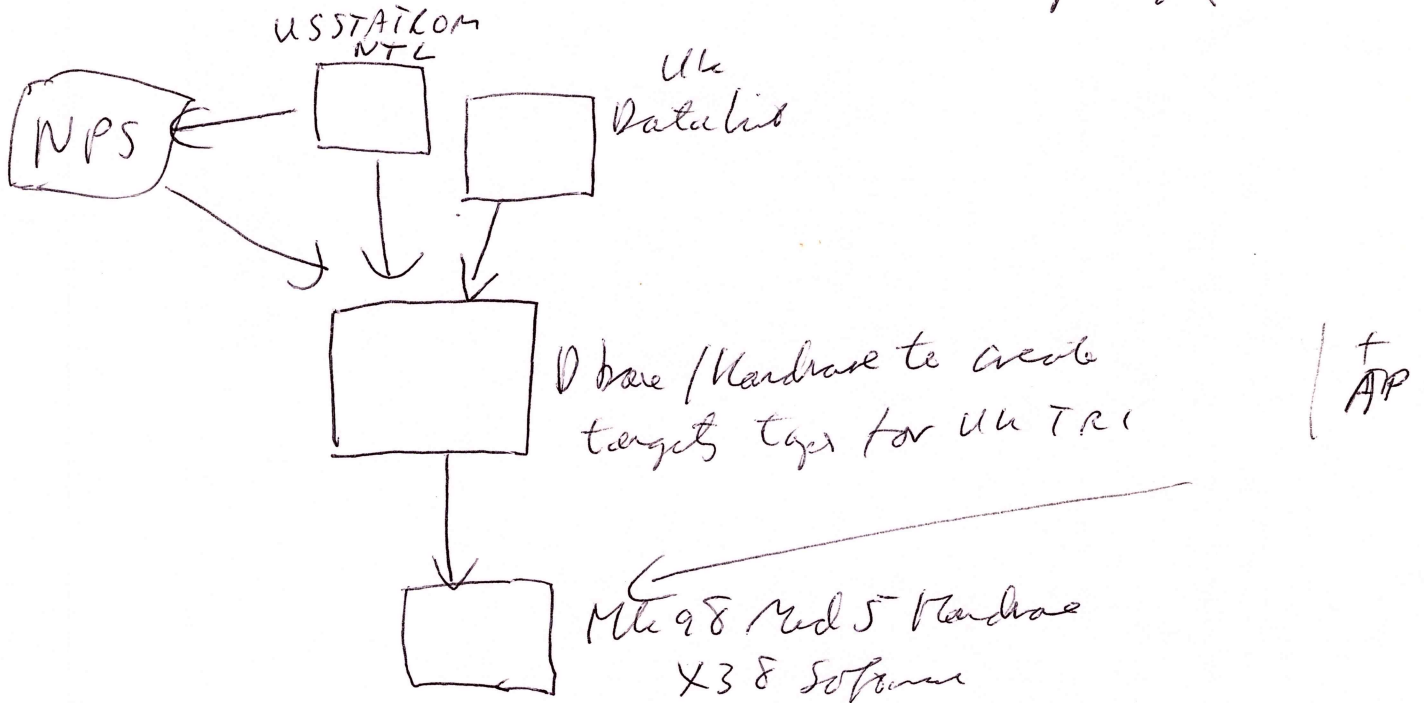 USSTATCOM
NTL
UK
NPS
Data
D base / Hardware to create
targets for UK TRI
+
AP
Mk 98 Mod 5 Hardware
X38 Software